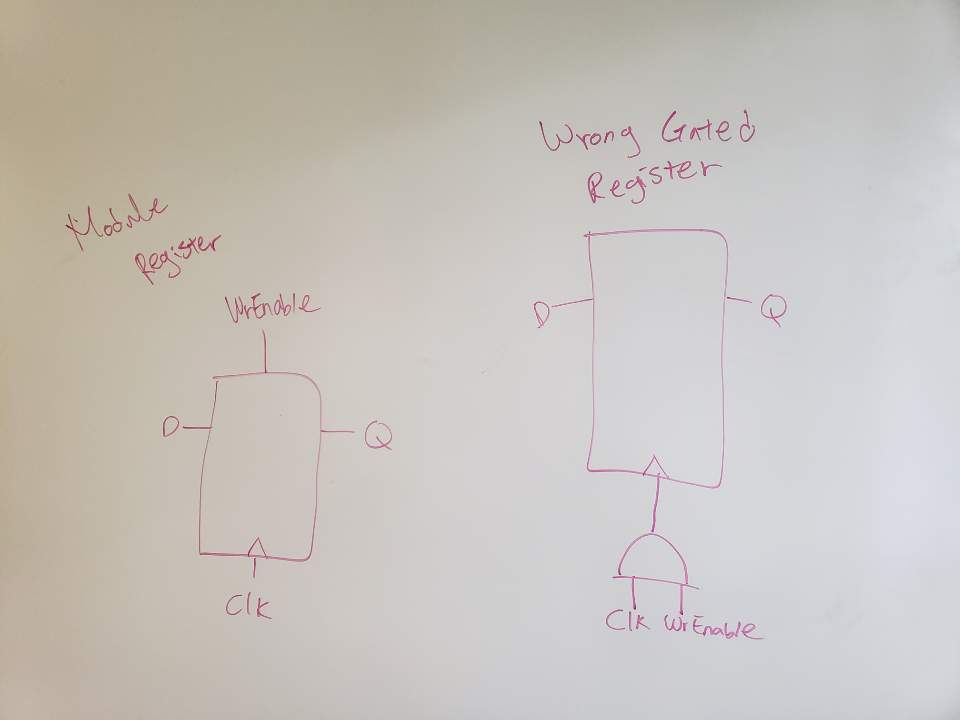 Module
Register
WrEnable
D
Q
Clk
Wrong Gated
Register
D
Q
Clk WrEnable